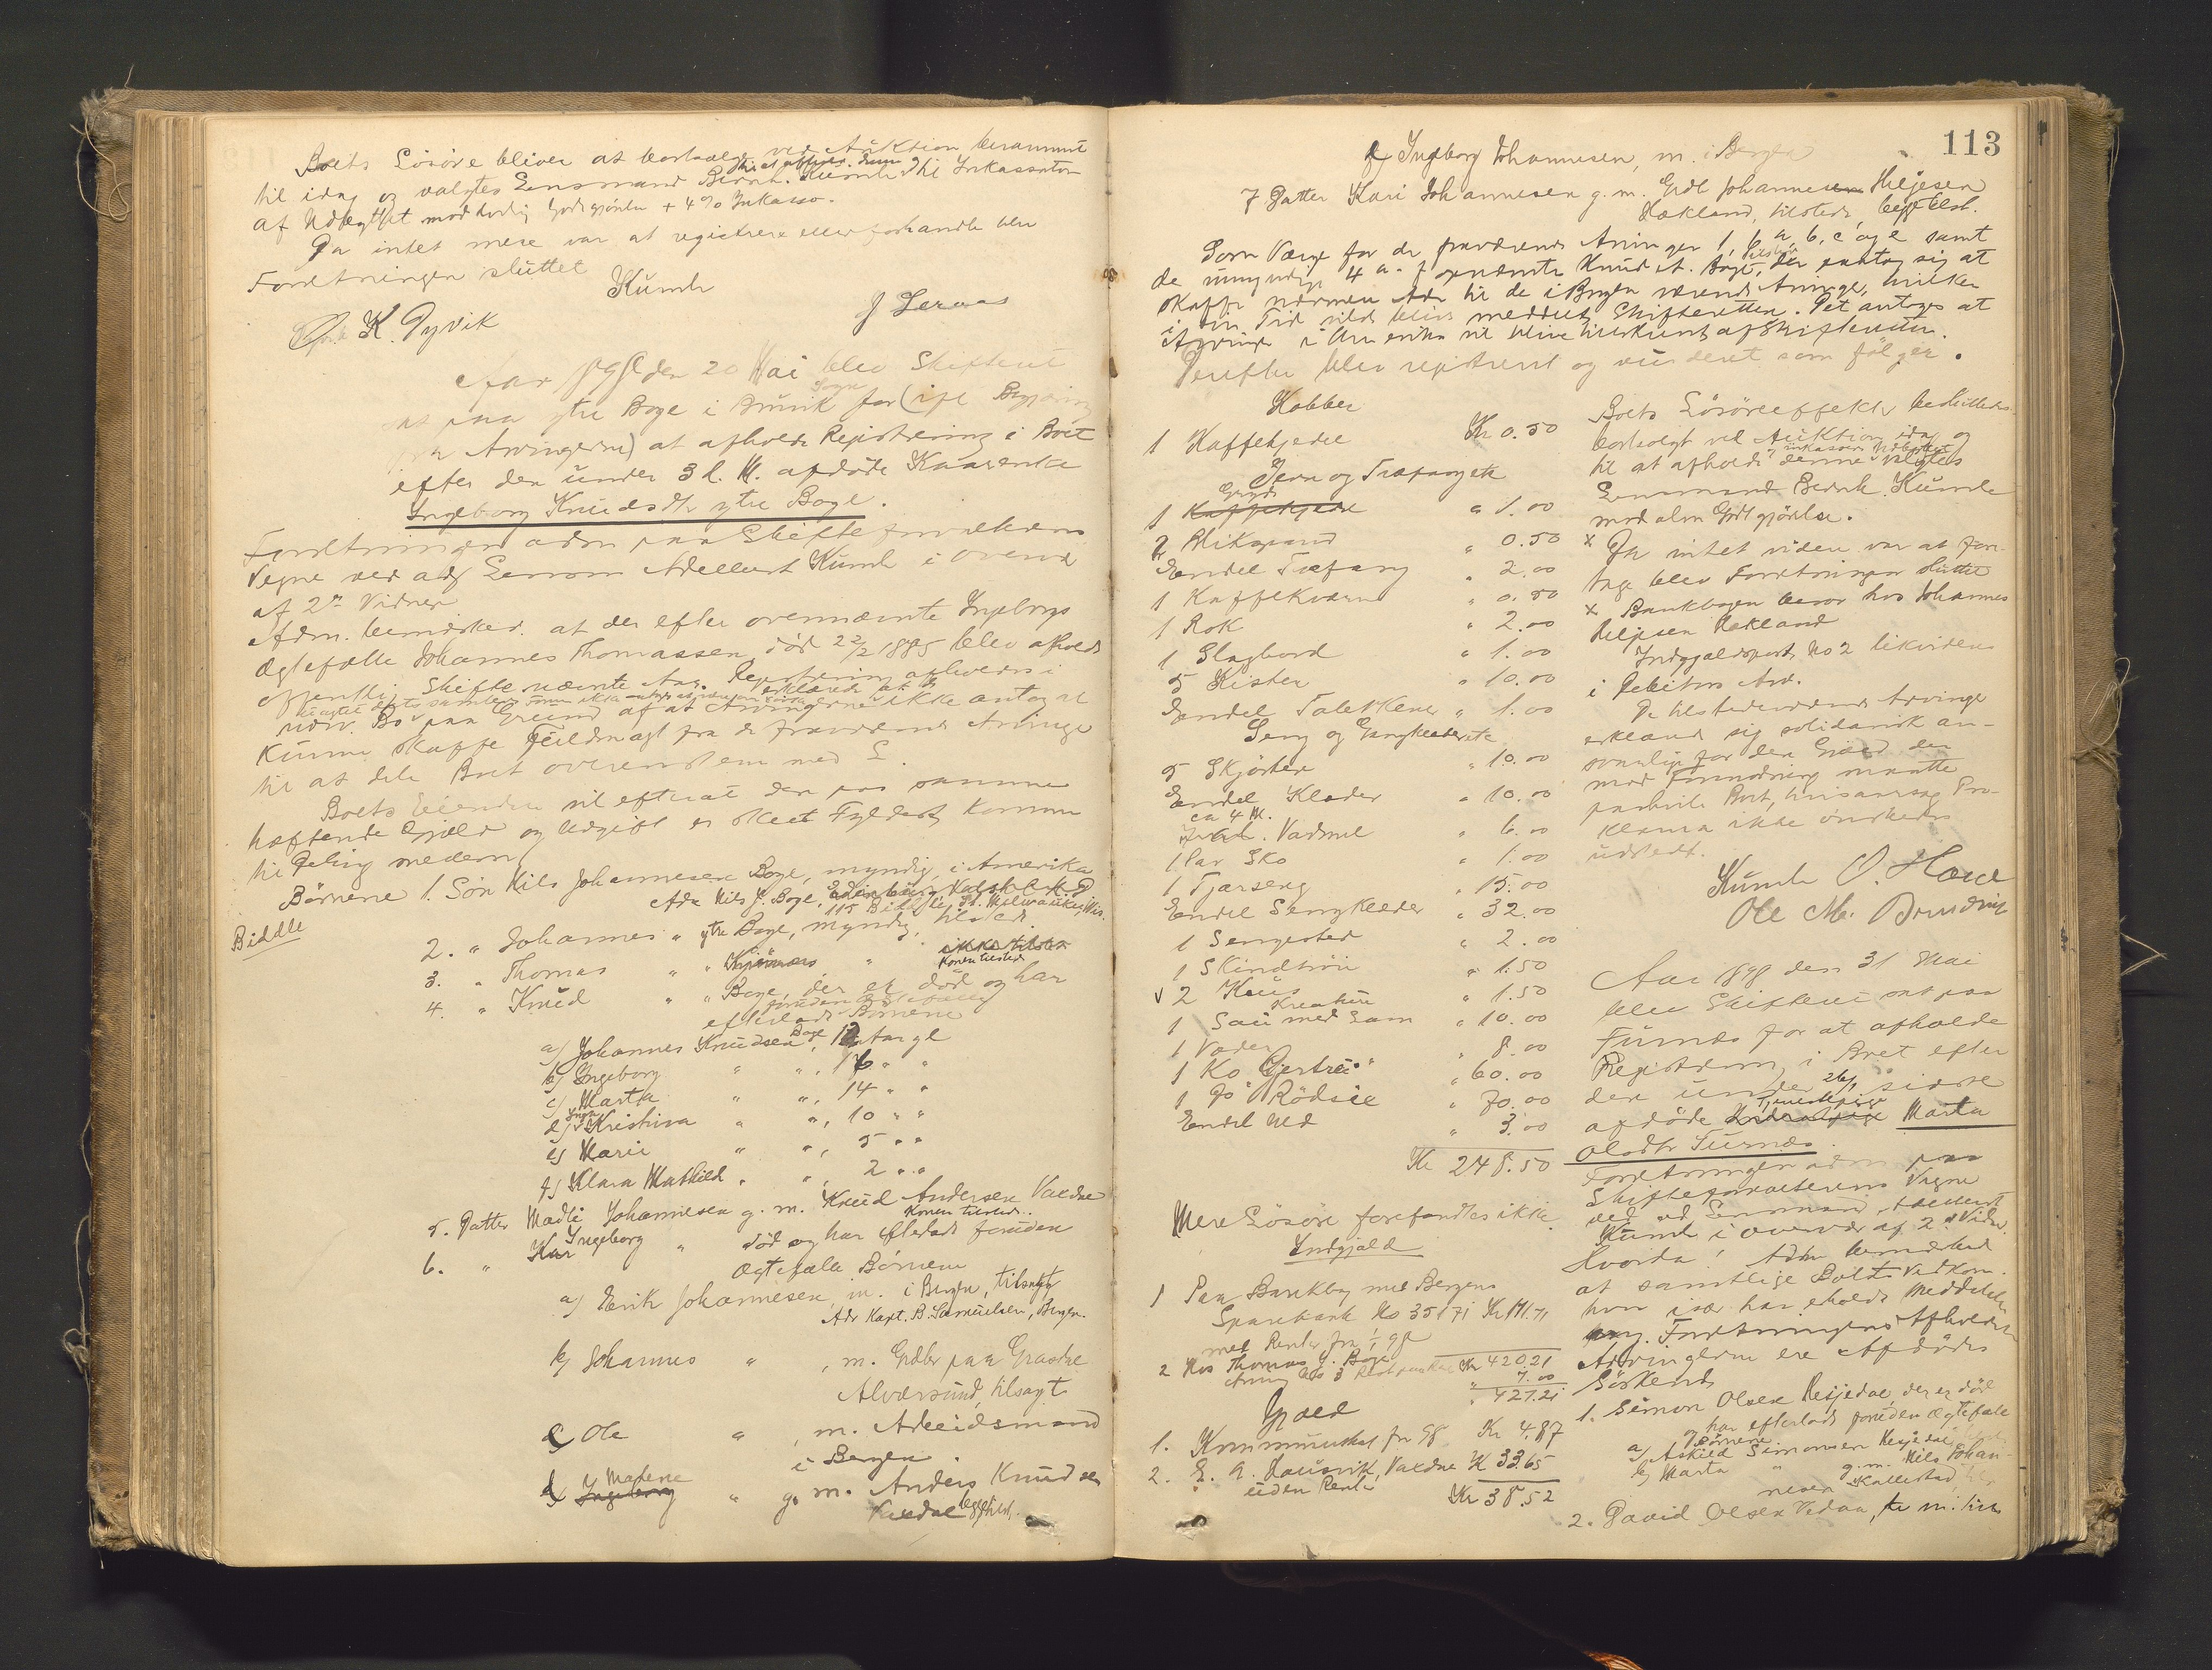 Boets Lösöre bliver at bortsælge ved Auktion berammet
til idag og valgtes Lensmand Bernh. Kumle til at afholde denne & til Inkassator
af Udbyttet mod lovlig Godtgjörelse + 4% Inkasso.
Da intet mere var at registrere eller forhandle blev
Forretningen sluttet
Kumle
K. Dyvik
J Leraas
Aar 1898 den 20 Mai blev Skifteret
sat paa ytre Boge i Bruvik Sogn for (ifl Begjæring
fra Arvingerne) at afholde Registrering i Boet
efter den under 3 d. M. afdöde Kaarenke
Ingeborg Knudsdtr ytre Boge.
Forretningen adm paa Skifteforvalterens
Vegne ved adj Lensm Adellert Kumle i Overvær
af 2de Vidner
Adm. bemærked. at der efter ovennævnte Ingeborgs
Ægtefælle Johannes Thomassen, död 22/2 1885 blev afholdt
offentlig Skifte nævnte Aar. Registrering afholdes i
udiv. Bo paa Grund af at Arvingerne erklærede at de ikke antog at
kunne skaffe Fuldmagt fra de fraværende Arvinge
til at dele Boet overensstem med L.
Boets Eiendele vil efterat den paa samme
hæftende Gjæld og Udgift er skeet Fyldest komme
til Deling mellem
Börnene 1. Sön Nils Johannesen Boge, myndig, i Amerika
Adr Nils J. Boge, 115 Biddle St. Milwaukee, Wis.
Biddle
2. " Johannes " ytre Boge, myndig, tilstede
3. " Thomas " " " ikke tilstede
Konen tilstede
4. " Knud " " Boge, der er död og har
efterladt foruden Ægtefælle Börnene
a) Johannes Knudsen Boge, 12 Aar gl
b) Ingeborg " ", 16 " "
c) Marta " ", 14 " "
d) Inga Kristina " ", 10 " "
e) Marie " ", 5 " "
f) Klara Mathild " ", 2 " "
5. Datter Madli Johannesen g. m. Knud Andersen Vaxdal
Konen tilstede.
6. " Kar Ingeborg " död og har efterladt foruden
Ægtefælle Börnene
a) Erik Johannesen, m. i Bergen, tilsagt
Adr Kapt. B. Samuelsen, Bergen.
b) Johannes " , m. Grdbr paa Graadae
Alværsund, tilsagt
c) Ole " , m. Arbeidsmand
i Bergen.
d) Ingeborg Madene " g. m. Anders Knudsen
Vaxdal begge tilst.
113
e) Ingeborg Johannesen, m. i Bergen
7 Datter Kari Johannesen g. m. Grdb Johannesen Heljesen
Hækland, tilstede, begge tilst.
Som Værge for de fraværende Arvinger 1, 6 a, b, c og e samt
de umyndige 4 a-f opnævntes Knud A. Boge, tilstede, der paatog sig at
skaffe nærmere Adr til de i Bergen værende Arvinge, hvilken
i sin Tid vilde blive meddelt Skifteretten. Det antoges at
Arvinge i Amerika vil blive tilskrevet af Skifteretten.
Derefter blev registreret og vurderet som fölger.
Kobber
1 Kaffekjedel Kr 0.50
Jern og Træfang etc
1 Kaffekjedel Gryde " 1.00
2 Blikspand " 0.50
Endel Træfang " 2.00
1 Kaffekværn " 0.50
1 Rok " 2.00
1 Slagbord " 1.00
5 Kister " 10.00
Endel Talekkener " 1.00
Seng og Gangklæder etc
5 Skjörter " 10.00
Endel Klæder " 10.00
ca 4 M.
Vadmel " 6.00
1 Par Sko " 1.00
1 Fjærseng " 15.00
Endel Sengklæder " 32.00
1 Sengested " 2.00
1 Skindtröie " 1.50
2 Krus " 1.50
Kreature
1 Sau med Lam " 10.00
1 Væder " 8.00
1 Ko "Gjestrei" " 60.00
1 Do "Rödsie " 70.00
Endel Ved " 3.00
Kr 248.50
Mere Lösöre forefandtes ikke.
Indgjæld
1 Paa Bankbog med Bergens
Sparebank No 35171 Kr 411.71
med Renter fra 1/1 98
2 Hos Thomas J. Boge
Kr 420.21
" 7.00
" 427.21
Gjæld
1. Kommuneskat for 98 Kr 4.87
2. E. A. Hausvik, Vaxdal Kr 33.65
uden Rente
Kr 38.52
Boets Lösöreeffekter besluttedes
bortsolgt ved Auktion idag og
til at afholde denne og inkassere Udbyttet valgtes
Lensmand Bernh. Kumle
mod alm Godtgjörelse.
x Da intet videre var at fore-
tage blev Forretningen sluttet
x Bankbogen beror hos Johannes
Heljesen Hækland
Indgjældspost No 2 likvideres
i Debitors Arv.
De tilstedeværende Arvinge
erklærede sig solidarisk an-
svarlige for den Gjæld der
mod Formodning maatte
paahvile Boet, hvisaarsag Pro-
klama ikke önskedes
udstedt.
Kumle O. Hæve
Ole M. Bruvik
Aar 1898 den 31 Mai
blev Skifteret sat paa
Furnes for at afholde
Registrering i Boet efter
den under 26/ sidste
afdöde Tjenestepige Marta
Olsdtr Furnes.
Forretningen adm paa
Skifteforvalterens Vegne
ved adj Lensmand Adellert
Kumle i Overvær af 2de Vidner
Hvorda! Adm bemærked
at samtlige Boets Vedkom.
hver især har erholdt Meddelelse
ang. Forretningens Afholdelse
Arvingerne ere Afdödes
Söskende
1. Simon Olsen Hesjedal, der er död
og har efterladt foruden Ægtefælle
Börnene.
a) Askild Simonsen Hesjedal
b) Marta " g. m. Nils Johan-
nesen Kallestad
2. David Olsen Vedaa, m. tilst